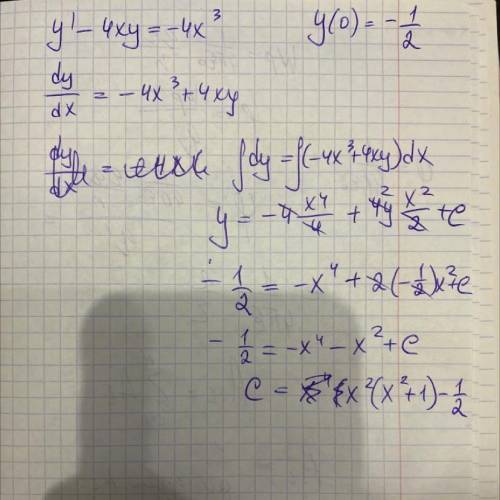 y' - 4xy = -4x³ y(0) = -1/2
dy/dx = -4x³ + 4xy
dy/dx = ∫dy = ∫(-4x³+4xy)dx
y = -4 x⁴/4 + 4y x²/2 + C
-1/2 = -x⁴ + 2(-1/2)x² + C
-1/2 = -x⁴ - x² + C
C = x²(x²+1) - 1/2